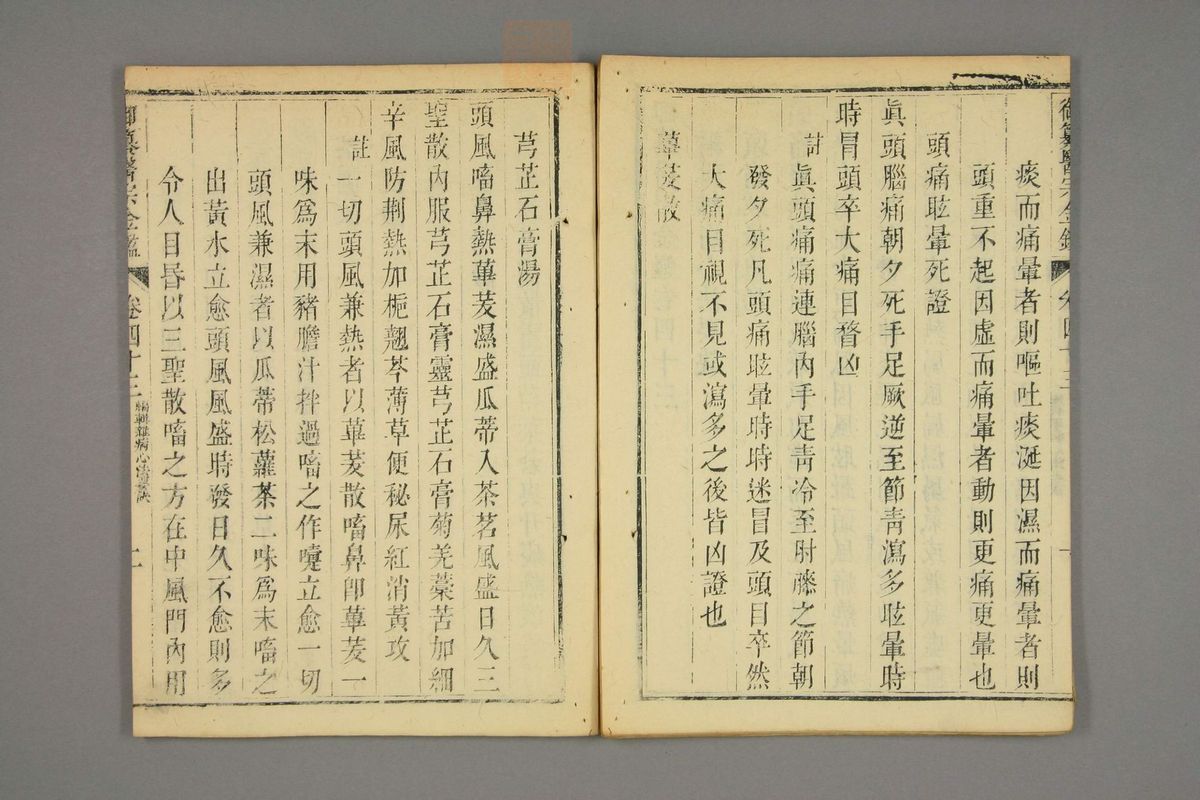 御纂醫宗金鑑
痰而痛暈者則嘔吐痰涎因濕而痛暈者則
頭重不起因虛而痛暈者動則更痛更暈也
頭痛眩暈死證
眞頭腦痛朝夕死手足厥逆至節靑瀉多眩暈時
時冒頭卒大痛目瞀凶
註眞頭痛痛連腦內手足靑冷至肘膝之節朝
發夕死凡頭痛眩暈時時迷冒及頭目卒然
大痛目視不見或瀉多之後皆凶證也
蓽茇散
芎芷石膏湯
頭風嗃鼻熱蓽茇濕盛瓜蒂入茶茗風盛日久三
聖散內服芎芷石膏靈芎芷石膏菊羌藁苦加細
辛風防荆熱加梔翹芩薄草便秘尿紅消黃攻
註一切頭風兼熱者以蓽茇散嗃鼻卽蓽茇一
味爲末用豬膽汁拌過嗃之作嚏立愈一切
頭風兼濕者以瓜蒂松蘿茶二味爲末嗃之
出黃水立愈頭風風盛時發日久不愈則多
令人目昏以三聖散嗃之方在中風門內用
御纂醫宗金鑑 卷四十三 編輯雜病心法要訣